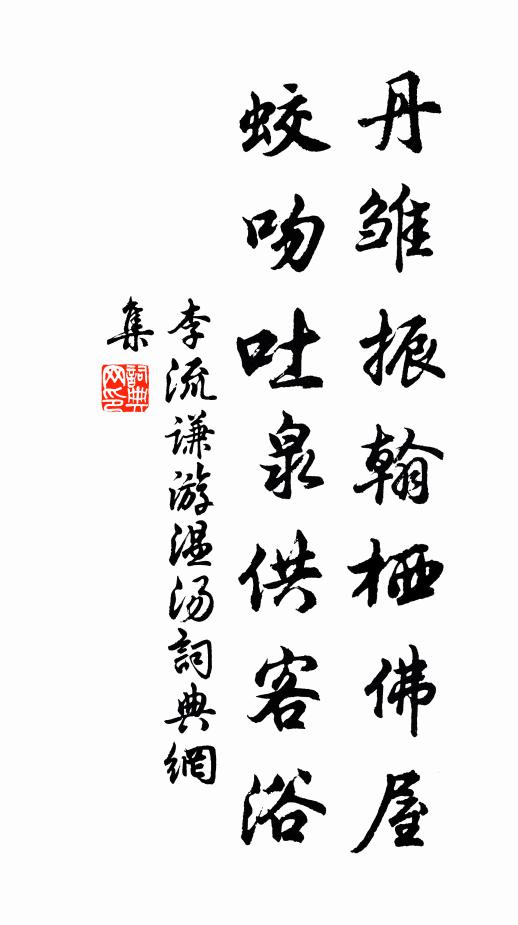 丹雏振翰栖佛屋
蛟吻吐泉供客浴
李流谦游温汤詞典網
集
詞典网印